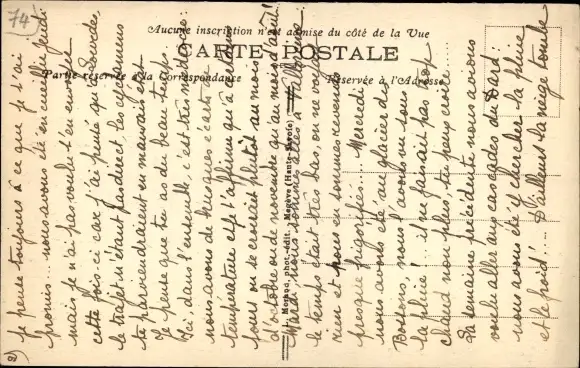 74
Aucune inscription n'est admise du côté de la Vue
CARTE POSTALE
Partie réservée à la Correspondance
Réservée à l'Adresse
Morand, phot.-édit., Megève (Haute-Savoie)
2)
je pense toujours à ce que je t'ai
promis... nous avons été en cueillir jeudi
mais je n'ai pas voulu t'en envoyer
cette fois ci car j'ai pensé qu'à Lourdes,
le trajet n'étant pas direct les
te parviendraient en mauvais état
Je pense que tu as du beau temps.
Ici, dans l'ensemble, c'est très médiocre:
nous avons de brusques écarts de
température et je t'affirme qu'à certains
jours on se croirait plutôt au mois
d'octobre ou de novembre qu'au mois d'août!
Mardi, nous sommes allés à
le temps était très bas, on ne voyait
rien et nous en sommes revenus
presque frigorifiés... Mercredi
nous avons été au glacier des
Bossons, nous l'avons vu sous
la pluie! il ne faisait pas trop
chaud non plus, tu peux croire...
La semaine précédente nous avons
voulu aller aux cascades du Dard:
nous avons été y chercher la pluie
et le froid!... D'ailleurs la neige tombe